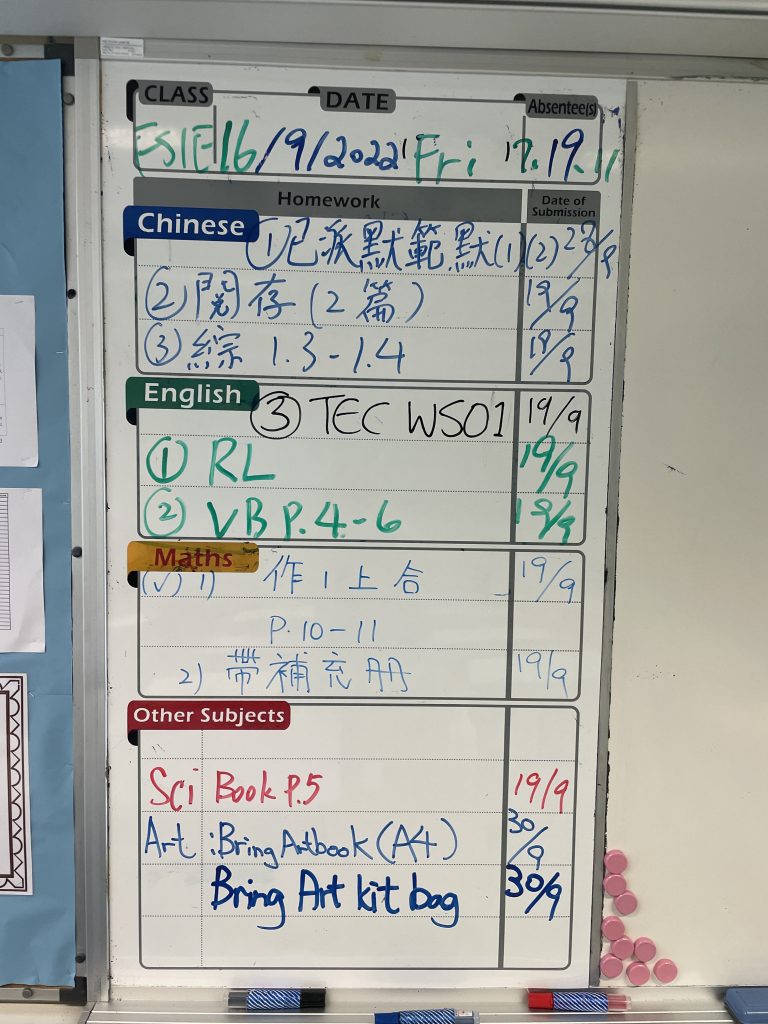 CLASS DATE Absentee(s)
16/9/2022 Fri 7.19.11
Homework Date of Submission
Chinese
①已派默範.默(1)(2) /9
② 存(2篇) 19/9
③綜 1.3-1.4 19/9
English
③ TEC WS01 19/9
① RL 19/9
② VB P.4-6 19/9
Maths
(✓) 1) 作1上 19/9
P.10-11
2) 帶補充冊 19/9
Other Subjects
Sci Book P.5 19/9
Art :Bring Artbook (A4) 30/9
Bring Art kit bag 30/9